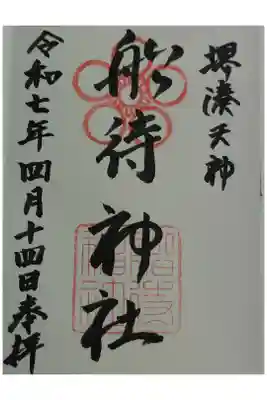 堺湊天神
船待神社
令和七年四月十四日奉拝